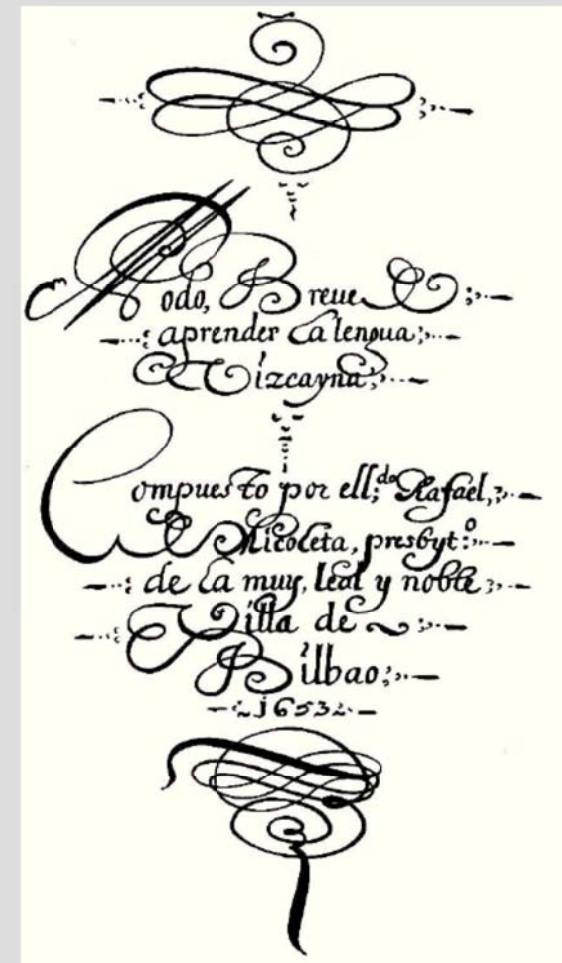 Modo, Breue de
aprender la lengua
Vizcayna,
Compuesto por el l.do Rafael,
Micoleta, presbyt.o
de la muy, leal y noble
Villa de
Bilbao;
1653